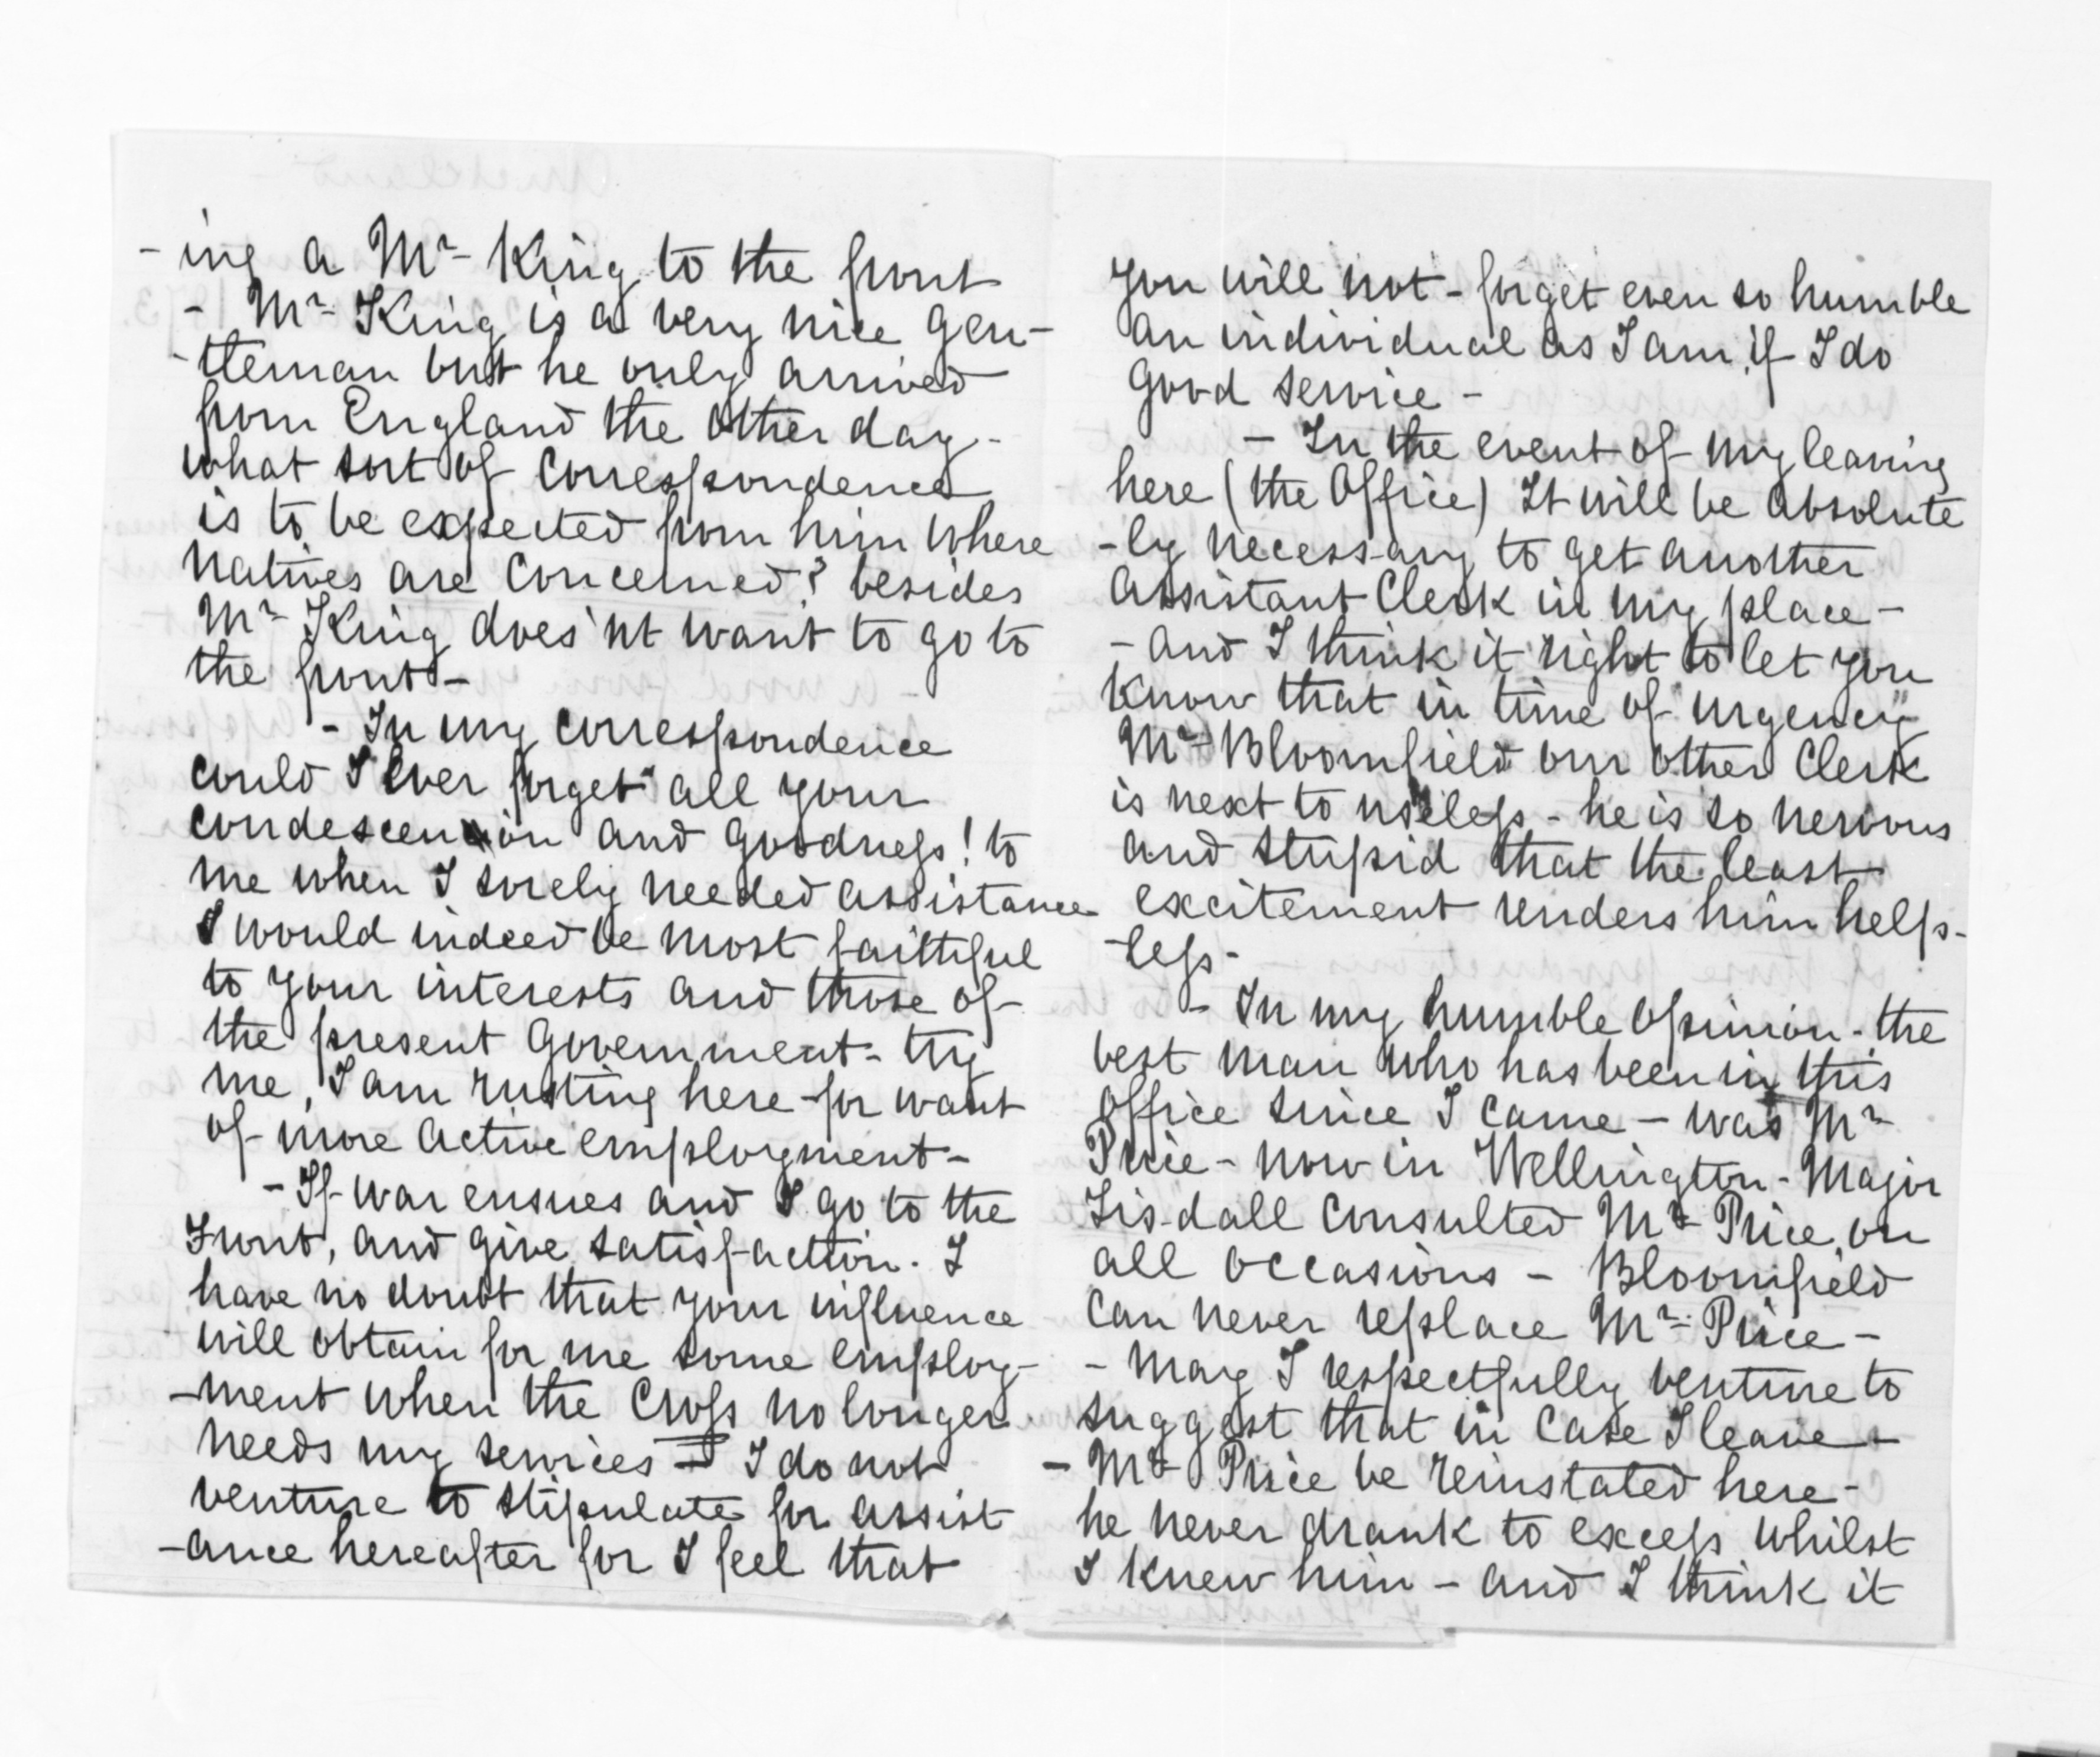 - ing a Mr- King to the front
- Mr- King is a very nice gen-
-tleman but he only arrived
from England the other day -
what sort of correspondence
is to be expected from him where
natives are concerned? besides
Mr- King does'nt want to go to
the front -
- In my correspondence
could I "ever forget" all your
condescension and goodness! to
me when I sorely needed assistance
I would indeed be most faithful
to your interests and those of
the present Government - try
me, I am rusting here for want
of more active employment -
- If war ensues and I go to the
Front, and give satisfaction. I
have no doubt that your influence
will obtain for me some employ-
-ment when the Cross no longer
needs my services - I do not
venture to stipulate for assist
-ance hereafter for I feel that
you will not - forget even so humble
an individual as I am, if I do
good service -
- In the event of my leaving
here (the Office) It will be absolute
-ly necessary to get another
assistant Clerk in my place -
- and I think it right to let you
know that in time of "urgency"
Mr- Bloomfield our other Clerk
is next to useless - he is so nervous
and stupid that the least
excitement renders him help-
-less -
- In my humble opinion - the
best man who has been in this
office since I came - was Mr
Price - now in Wellington - Major
Tisdall consulted Mr- Price, on
all occasions - Bloomfield
can never replace Mr- Price -
- May I respectfully venture to
suggest that in case I leave -
- Mr Price be reinstated here -
he never drank to excess whilst
I knew him - and I think it